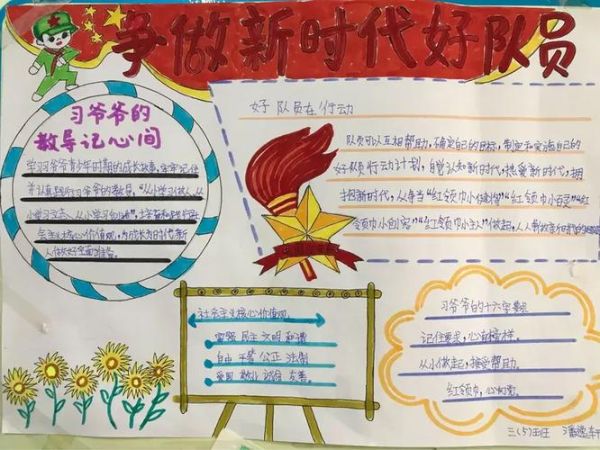 争做新时代好队员
习爷爷的
教导记心间
学习习爷爷青少年时期的成长故事，牢牢记住
并认真践行习爷爷的教导，“从小学习做人、从
小学习立志、从小学习创造”，培育和践行社
会主义核心价值观，为成长为时代新
人做好全面准备。
好队员在行动
队员可以互相帮助，确定自己的目标，制定和实施自己的
好队员行动计划，自觉认知新时代，热爱新时代，拥
抱新时代，从争当“红领巾小健将”“红领巾小百灵”“红
领巾小创客”“红领巾小主人”做起，人人
社会主义核心价值观
富强 民主 文明 和谐
自由 平等 公正 法制
爱国 敬业 诚信 友善。
习爷爷的十六字要求
记住要求，心有榜样。
从小做起，接受帮助。
红领巾，心向党。
三(5)班